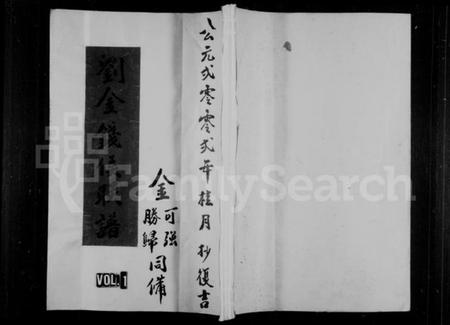 公元弍零零弍年桂月抄復書
金
可強
勝歸同備
劉金錢氏族譜
VOL. 1
FamilySearch